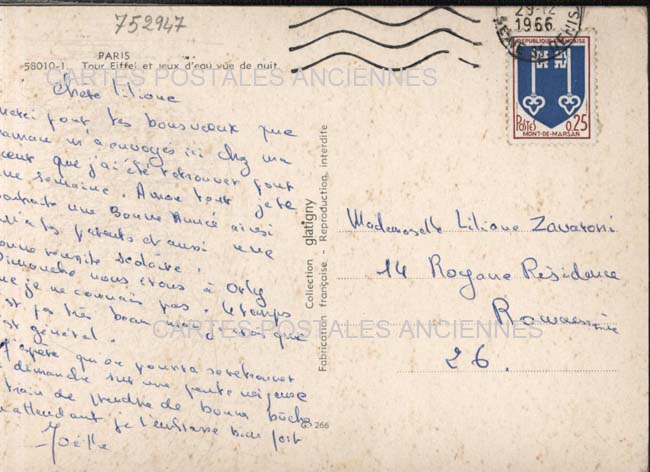 752947
29-12
1966
SEINE ST DENIS
REPUBLIQUE FRANÇAISE
POSTES 0,25
MONT-DE-MARSAN
PARIS
58010-1. Tour Eiffel et jeux d'eau vue de nuit
CARTES POSTALES ANCIENNES
Chère Liliane
pour tes bons vœux que
maman m'a envoyés ici chez ma
sœur que j'ai été retrouver pour
une semaine. Avant tout je te
souhaite une Bonne Année ainsi
qu'à tes parents et aussi une
bonne réussite scolaire.
Dimanche nous irons à Orly
que je ne connais pas. Le temps
est pas très beau mais je crois que
est général.
J'espère qu'on pourra se retrouver
dimanche sur une pente neigeuse
train de prendre de bonnes bûches
attendant je t'embrasse bien fort
Joëlle
Collection glatigny
Fabrication française - Reproduction interdite
G. 266
Mademoiselle Liliane Zavaroni
14 Royans Résidence
Romans
26.
CARTES POSTALES ANCIENNES